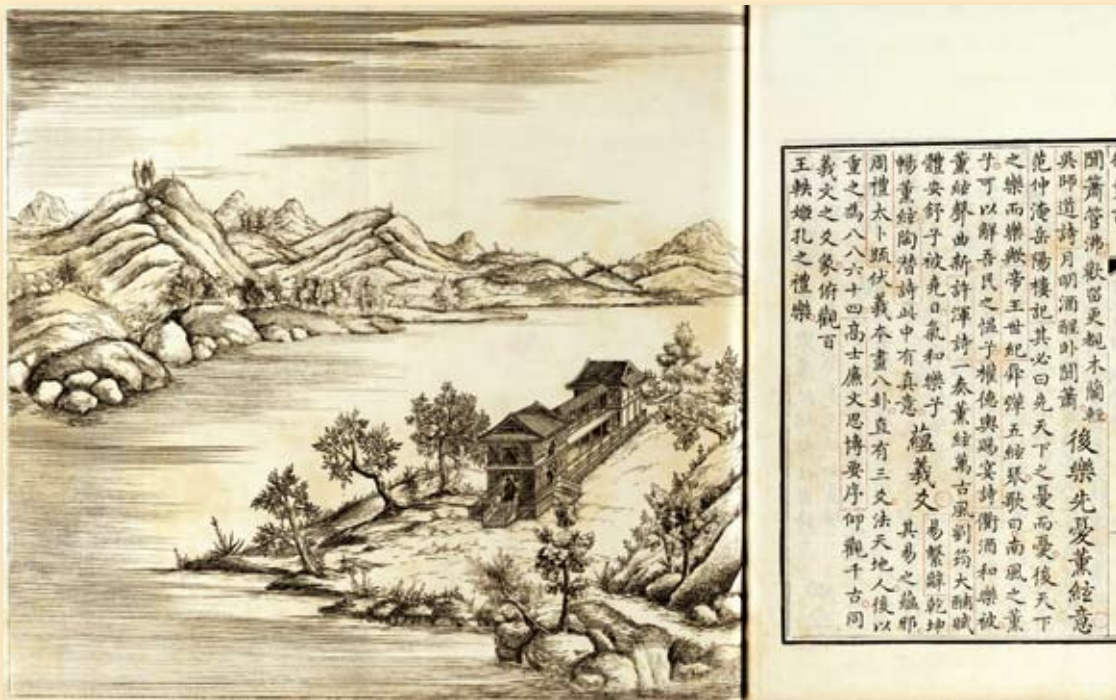 聞簫管沸歡留更
吳師道詩月明酒醒卧聞簫
後樂先憂薰絃意
范仲淹岳陽樓記其必曰先天下之憂而憂後天下
之樂而樂歟帝王世紀舜彈五絃琴歌曰南風之薰
兮可以解吾民之慍兮權德輿賜宴詩衢酒和樂被
薰絃聲曲新許渾詩一奏薰絃萬古風劉筠大酺賦
體安舒兮被堯日氣和樂兮
暢薰絃陶潛詩此中有真意
蘊羲爻
易繫辭乾坤
其易之蘊邪
周禮太卜疏伏羲本畫八卦直有三爻法天地人後以
重之為八八六十四高士廉文思博要序仰觀千古同
羲文之爻象俯觀百
王軼姬孔之禮樂